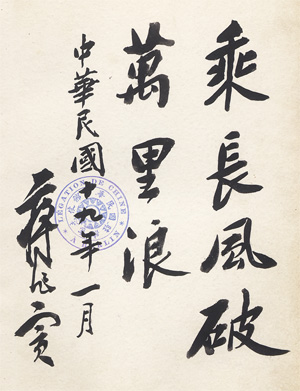 乘長風破
萬里浪
中華民國十九年一月
蔣作賓
LÉGATION DE CHINE